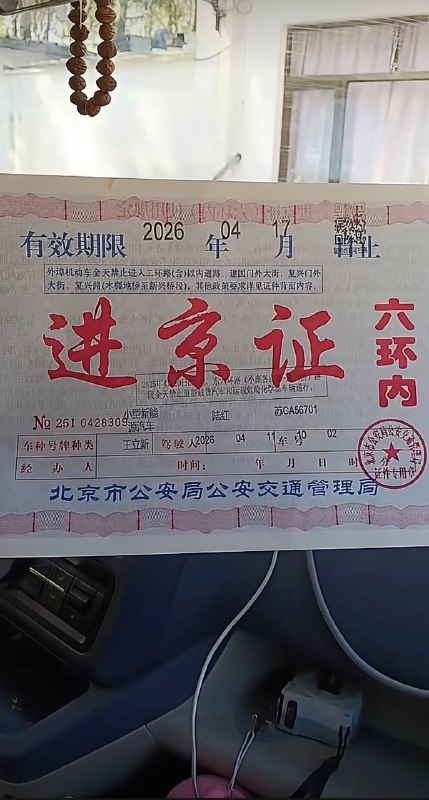 有效期限 2026 年 04 月 17 日止
外埠机动车全天禁止进入二环路(含)以内道路、建国门外大街、复兴门外
大街、复兴路(木樨地桥至新兴桥段)。其他政策要求详见证件背面内容。
进京证
六环内
段全天禁止重型载货汽车和运载危险化学品车辆通行。
№ 251 0428309
小型新能
源汽车
陆红
苏CA56701
车种号牌种类
王立新
驾驶人
2026 04 11 10 02
车号
经办人
时间:
年 月 日
证件专用章
北京市公安局公安交通管理局